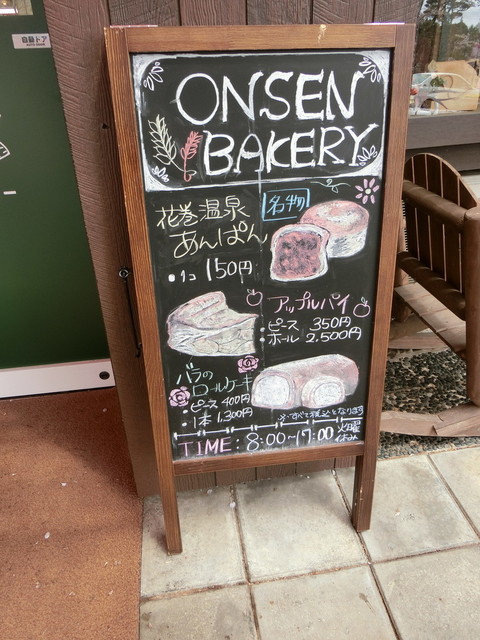 自動ドア
ONSEN
BAKERY
花巻温泉
名物
あんぱん
・1コ 150円
アップルパイ
ピース 350円
ホール 2,500円
バラの
ロールケーキ
・ピース 400円
・1本 1,300円
※すべて税込となります
TIME: 8:00~17:00
火曜
休み